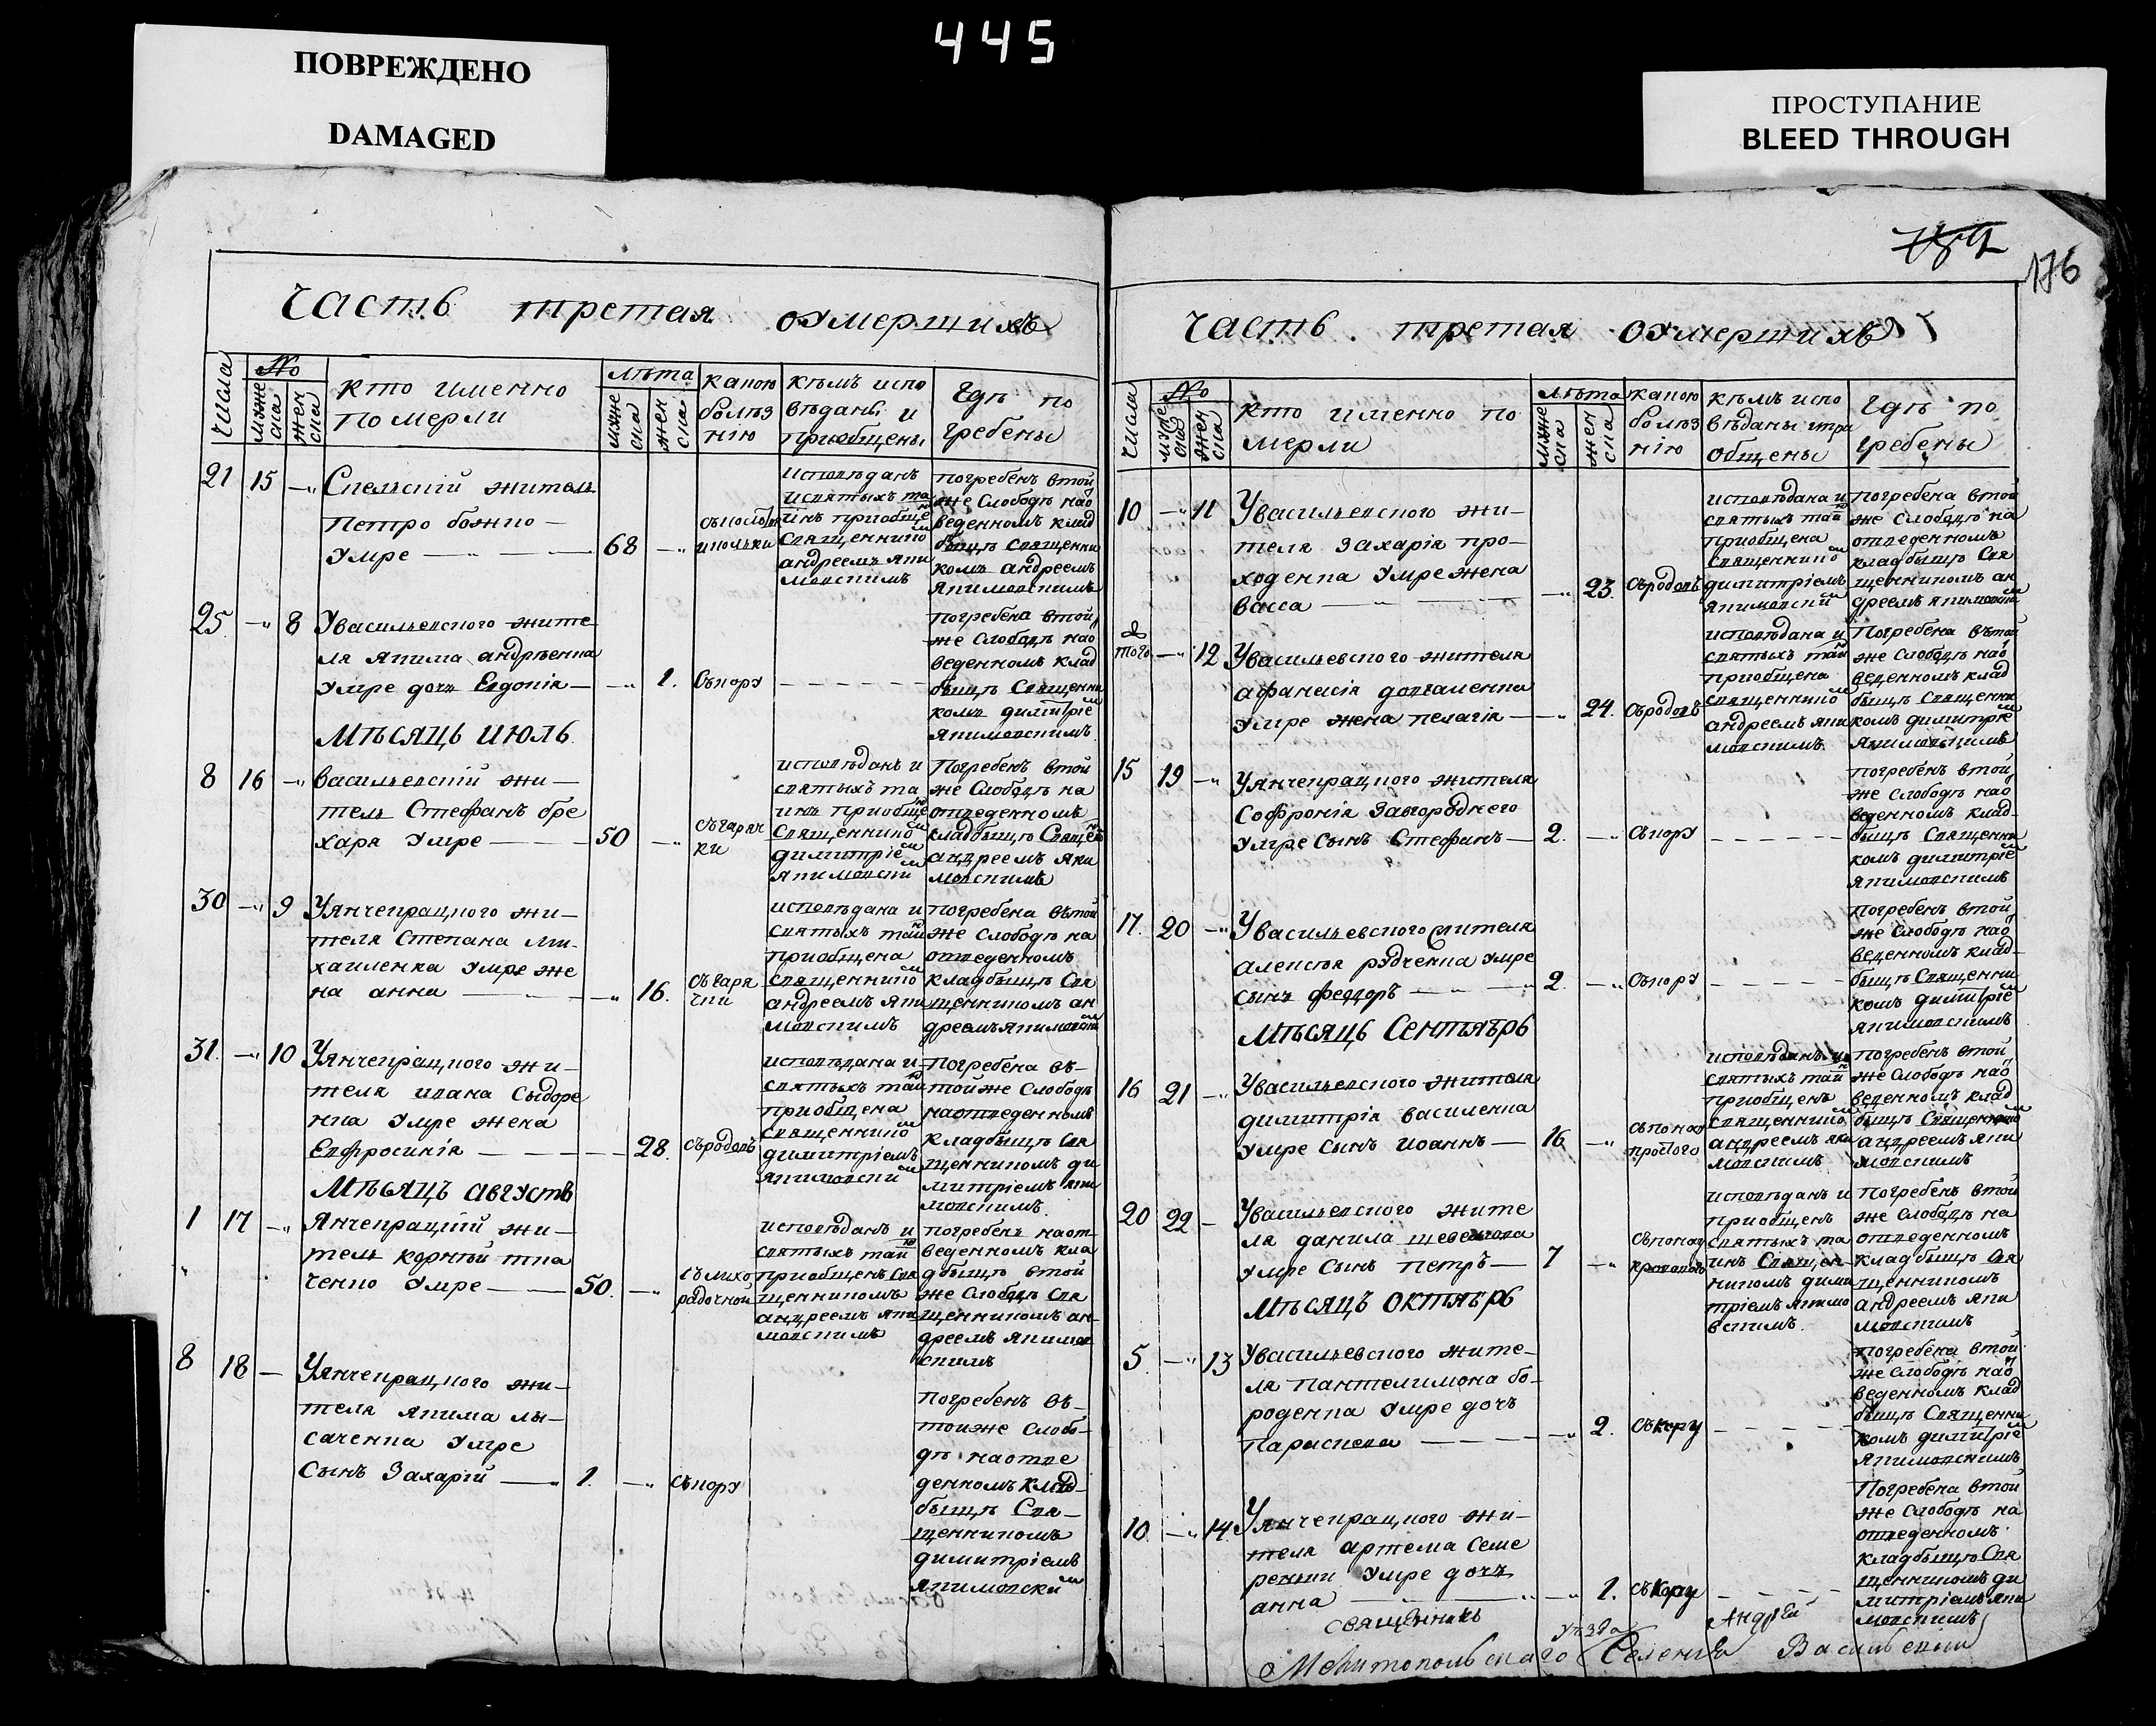 445
ПОВРЕЖДЕНО
DAMAGED
ПРОСТУПАНИЕ
BLEED THROUGH
176
Часть третая оумершихъ
Числа
№
муже
ска
жен
ска
кто именно
померли
лѣта
муже
ска
жен
ска
какою
болѣз
нію
кѣмъ испо
вѣданы и
приобщены
Гдѣ по
гребены
21 15 житель
Петро божко
умре 68
исповѣданъ
и святыхъ та
инъ приобще
священнико
андреемъ яки
мовскимъ
погребенъ втой
же Слободѣ нао
веденномъ клад
бищѣ священни
комъ андреемъ
якимовскимъ
25 8 Увасильевского жите
ля якима андрѣенка
умре дочь Евдокія 1. Съкору
погребена втой
же Слободѣ нао
веденномъ клад
бищѣ Священни
комъ димитріе
якимовскимъ
Мѣсяцъ июль
8 16 васильевскій жи
тель Стефанъ бре
харя умре 50 съгаряч
ки
исповѣданъ и
святыхъ та
инъ приобще
священнико
димитріе
якимовски
Погребенъ втой
же Слободѣ на
отведенномъ
кладбищѣ Свяще
андреемъ яки
мовскимъ
30 9 Уянчекрацкого жи
теля Степана ми
хаиленка умре же
на анна 16. Съгаря
чки
исповѣдана и
святыхъ таи
приобщена
священнико
андреемъ яки
мовскимъ
погребена вътой
же Слободѣ на
отведенномъ
кладбищѣ Свя
щенникомъ ан
дреемъ якимовски
31. 10 Уянчекрацкого жи
теля ивана Сыдоре
нка умре жена
Евфросинія 28. Съродовъ
исповѣдана и
святыхъ таи
приобщена
священнико
димитріемъ
якимовски
Погребена въ
той же Слободѣ
наотведенномъ
кладбищѣ Свя
щенникомъ ди
митріемъ яки
мовскимъ
Мѣсяцъ августъ
1 17 Янчекрацкій жи
тель корнѣй тка
ченко умре 50. Сълихо
радочной
исповѣданъ и
святыхъ таи
приобщенъ Свя
щенникомъ
андреемъ яки
мовскимъ
погребенъ наот
веденномъ кла
дбищѣ втой
же Слободѣ Свя
щенникомъ ан
дреемъ якимов
скимъ
8 18 Уянчекрацкого жи
теля якима лы
саченка умре
Сынъ Захарій 1. Съкору
погребенъ въ
тойже Слобо
дѣ наотве
денномъ клад
бищѣ Свя
щенникомъ
димитріемъ
якимовски
Часть третая оумершихъ
Числа
№
муже
ска
жен
ска
кто именно по
мерли
лѣта
муже
ска
жен
ска
какою
болѣз
нію
кѣмъ испо
вѣданы ипри
общены
Гдѣ по
гребены
10 11 Увасильевского жи
теля Захарія про
ходенка умре жена
васса 23. Съродовъ
исповѣдана и
святыхъ таи
приобщена
священнико
димитріемъ
якимовски
Погребена втой
же Слободѣ на
отведенномъ
кладбищѣ Свя
щенникомъ ан
дреемъ якимовски
того 12 Увасильевского жителя
афанасія довгаленка
умре жена пелагія 24. Съродовъ
исповѣдана и
святыхъ таи
приобщена
священнико
андреемъ яки
мовскимъ
Погребена вътой
же Слободѣ нао
веденномъ клад
бищѣ Священни
комъ димитріе
якимовскимъ
15 19 Уянчекрацкого жителя
Софронія Загороднего
умре Сынъ Стефанъ 2. Съкору
погребенъ втой
же Слободѣ нао
веденномъ клад
бищѣ Священни
комъ димитріе
якимовскимъ
17. 20 Увасильевского жителя
алексѣя рудченка умре
сынъ федоръ 2. Съкору
Погребенъ втой
же Слободѣ нао
веденномъ клад
бищѣ Священни
комъ димитріе
якимовскимъ
Мѣсяцъ Сентябрь
16 21 Увасильевского жителя
димитрія василенка
умре Сынъ иоаннъ 16
исповѣданъ и
святыхъ таи
приобщенъ
священнико
андреемъ яки
мовскимъ
погребенъ втой
же Слободѣ нао
веденномъ клад
бищѣ Священнико
андреемъ яки
мовскимъ
20 22 Увасильевского жите
ля данила
умре Сынъ петръ 7
исповѣданъ и
приобщенъ
святыхъ та
инъ Священ
никомъ дими
тріемъ якимо
вскимъ
Погребенъ втой
же Слободѣ на
отведенномъ
кладбищѣ Свя
щенникомъ
андреемъ яки
мовскимъ
Мѣсяцъ октябрь
5 13 Увасильевского жите
ля Пантелимона бо
роденка умре дочь
Параскева 2. Съкору
погребена втой
же Слободѣ нао
веденномъ клад
бищѣ Священни
комъ димитріе
якимовскимъ
10. 14. Уянчекрацкого жи
теля артема Семе
умре дочь
анна 1. Съкору
Погребена втой
же Слободѣ на
отведенномъ
кладбищѣ Свя
щенникомъ ди
митріемъ яки
мовскимъ
Священникъ Андрей
Мелитопольскаго уѣзда Селенія